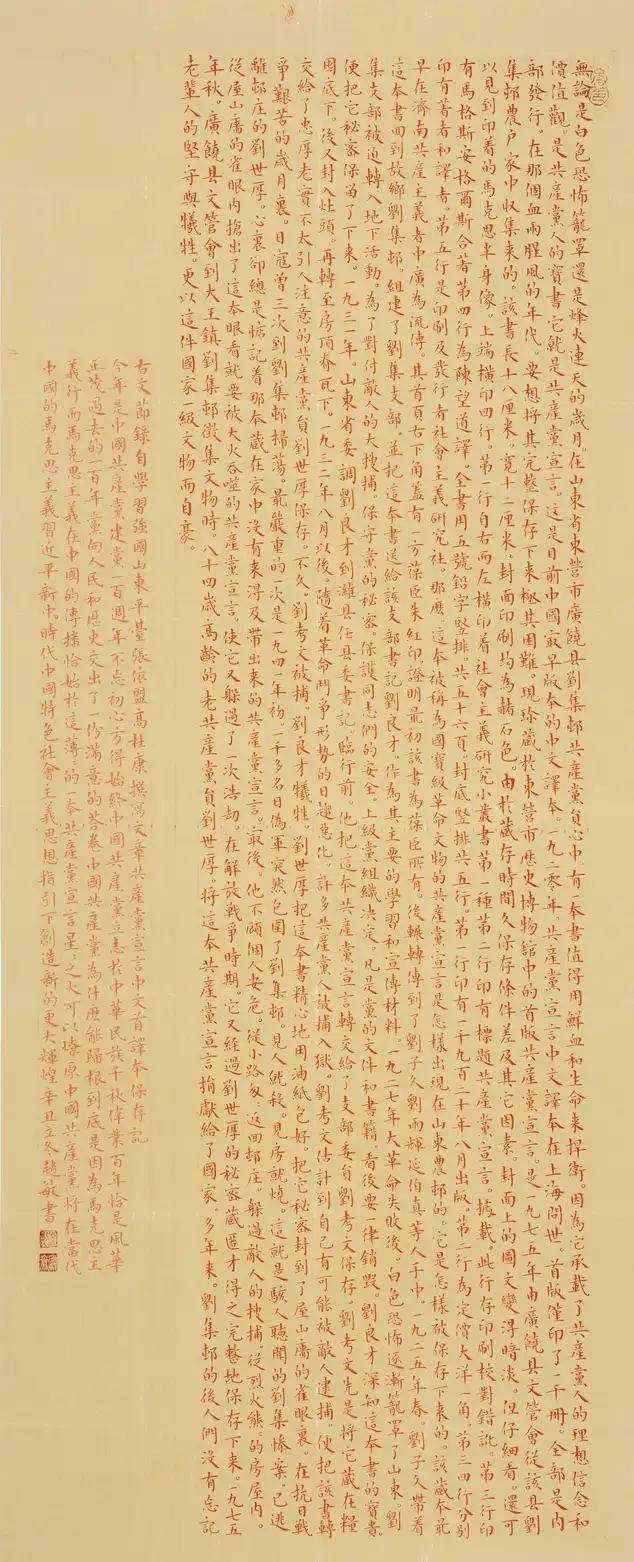 無論是白色恐怖籠罩還是烽火連天的歲月。在山東省東營市廣饒縣劉集邨共產黨員心中。有一本書值得用鮮血和生命来捍衛。因為它承載了共產黨人的理想信念和
價值觀。是共產黨人的寶書。它就是共產黨宣言。這是目前中國最早版本的中文譯本。一九二零年。共產黨宣言中文譯本在上海問世。首版僅印了一千冊。全部是内
部發行。在那個血雨腥風的年代。要想將其完整保存下来極其困難。現珍藏於東營市歷史博物舘中的首版共產黨宣言。是一九七五年由廣饒縣文管會從該縣劉
集邨農户家中收集来的。該書長十八厘米。寬十二厘米。封面印刷均為赭石色。由於藏存時間久保存條件差及其它因素。封面上的圖文變得暗淡。但仔細看。還可
以見到印着的馬克思半身像。上端横印四行。第一行自右而左横印着社會主義研究小叢書第一種第二行印有標題共產黨宣言。據載。此行存印刷校對錯訛。第三行印
有馬格斯安格爾斯合著第四行為陳望道譯。全書用五號鉛字竪排。共五十六頁。封底竪排共五行。第一行印有一千九百二十年八月出版。第二行為定價大洋一角。第三四行分别
印有著者和譯者。第五行是印刷及發行者社會主義研究社。那麽。這本被稱為國寶級革命文物的共產黨宣言是怎樣出現在山東農邨的。它是怎樣被保存下来的。該藏本最
早在濟南共產主義者中廣為流傳。其首頁右下角蓋有一方葆臣朱紅印。證明最初該書為葆臣所有。後輾轉傳到了劉子久劉雨輝延伯真等人手中。一九二五年春。劉子久帶着
這本書回到故鄉劉集邨。組建了劉集支部。並把這本書送給該支部書記劉良才。作為其主要的學習和宣傳材料。一九二七年大革命失敗後。白色恐怖逐漸籠罩了山東。劉
集支部被迫轉入地下活動。為了對付敵人的大搜捕。保守黨的秘密。保護同志們的安全。上級黨組織决定。凡是黨的文件和書籍。看後要一律銷毁。劉良才深知這本書的寶貴。
便把它秘密保留了下来。一九三一年。山東省委調劉良才到濰县任县委書記。臨行前。他把這本共產黨宣言轉交給了支部委員劉考文保存。劉考文先是將它藏在糧
囤底下。後又封入灶頭。再轉至房頂脊瓦下。一九三二年八月以後。隨着革命鬥争形勢的日趨惡化。許多共產黨人被捕入獄。劉考文估計到自己有可能被敵人逮捕。便把該書轉
交給了忠厚老實不太引人注意的共產黨員劉世厚保存。不久。劉考文被捕。劉良才犧牲。劉世厚把這本書精心地用油紙包好。把它秘密封到了屋山牆的雀眼裏。在抗日戰
争艱苦的歲月裏。日寇曾三次到劉集邨掃蕩。最嚴重的一次是一九四一年初。一千多名日偽軍突然包圍了劉集邨。見人就殺。見房就燒。這就是駭人聽聞的劉集慘案。已逃
離邨庄的劉世厚。心裏卻總是惦記着那本藏在家中沒有来得及帶出来的共產黨宣言。最後。他不顧個人安危。從小路匆匆返回邨庄。躲過敵人的搜捕。從烈火熊熊的房屋内。
從屋山牆的雀眼内搶出了這本眼看就要被大火吞噬的共產黨宣言。使它又躲過了一次浩劫。在解放戰争時期。它又經過劉世厚的秘密藏匿才得之完整地保存下来。一九七五
年秋。廣饒县文管會到大王鎮劉集邨徵集文物時。八十四歲高齡的老共產黨員劉世厚。將這本共產黨宣言捐獻給了國家。多年来。劉集邨的後人們沒有忘記
老輩人的堅守與犧牲。更以這件國家一級文物而自豪。
右文節錄自學習强國山東平臺張依盟高杜康撰寫文章共產黨宣言中文首譯本保存記
今年是中國共產黨建黨一百週年不忘初心方得始終中國共產黨立志於中華民族千秋偉業百年恰是風華
正茂過去的一百年黨向人民和歷史交出了一份滿意的答卷中國共產黨為什麽能歸根到底是因為馬克思主
義行而馬克思主義在中國的傳播恰始於這薄薄的一本共產黨宣言星星之火可以燎原中國共產黨將在當代
中國的馬克思主義習近平新時代中國特色社會主義思想指引下創造新的更大輝煌辛丑立冬趙敏書